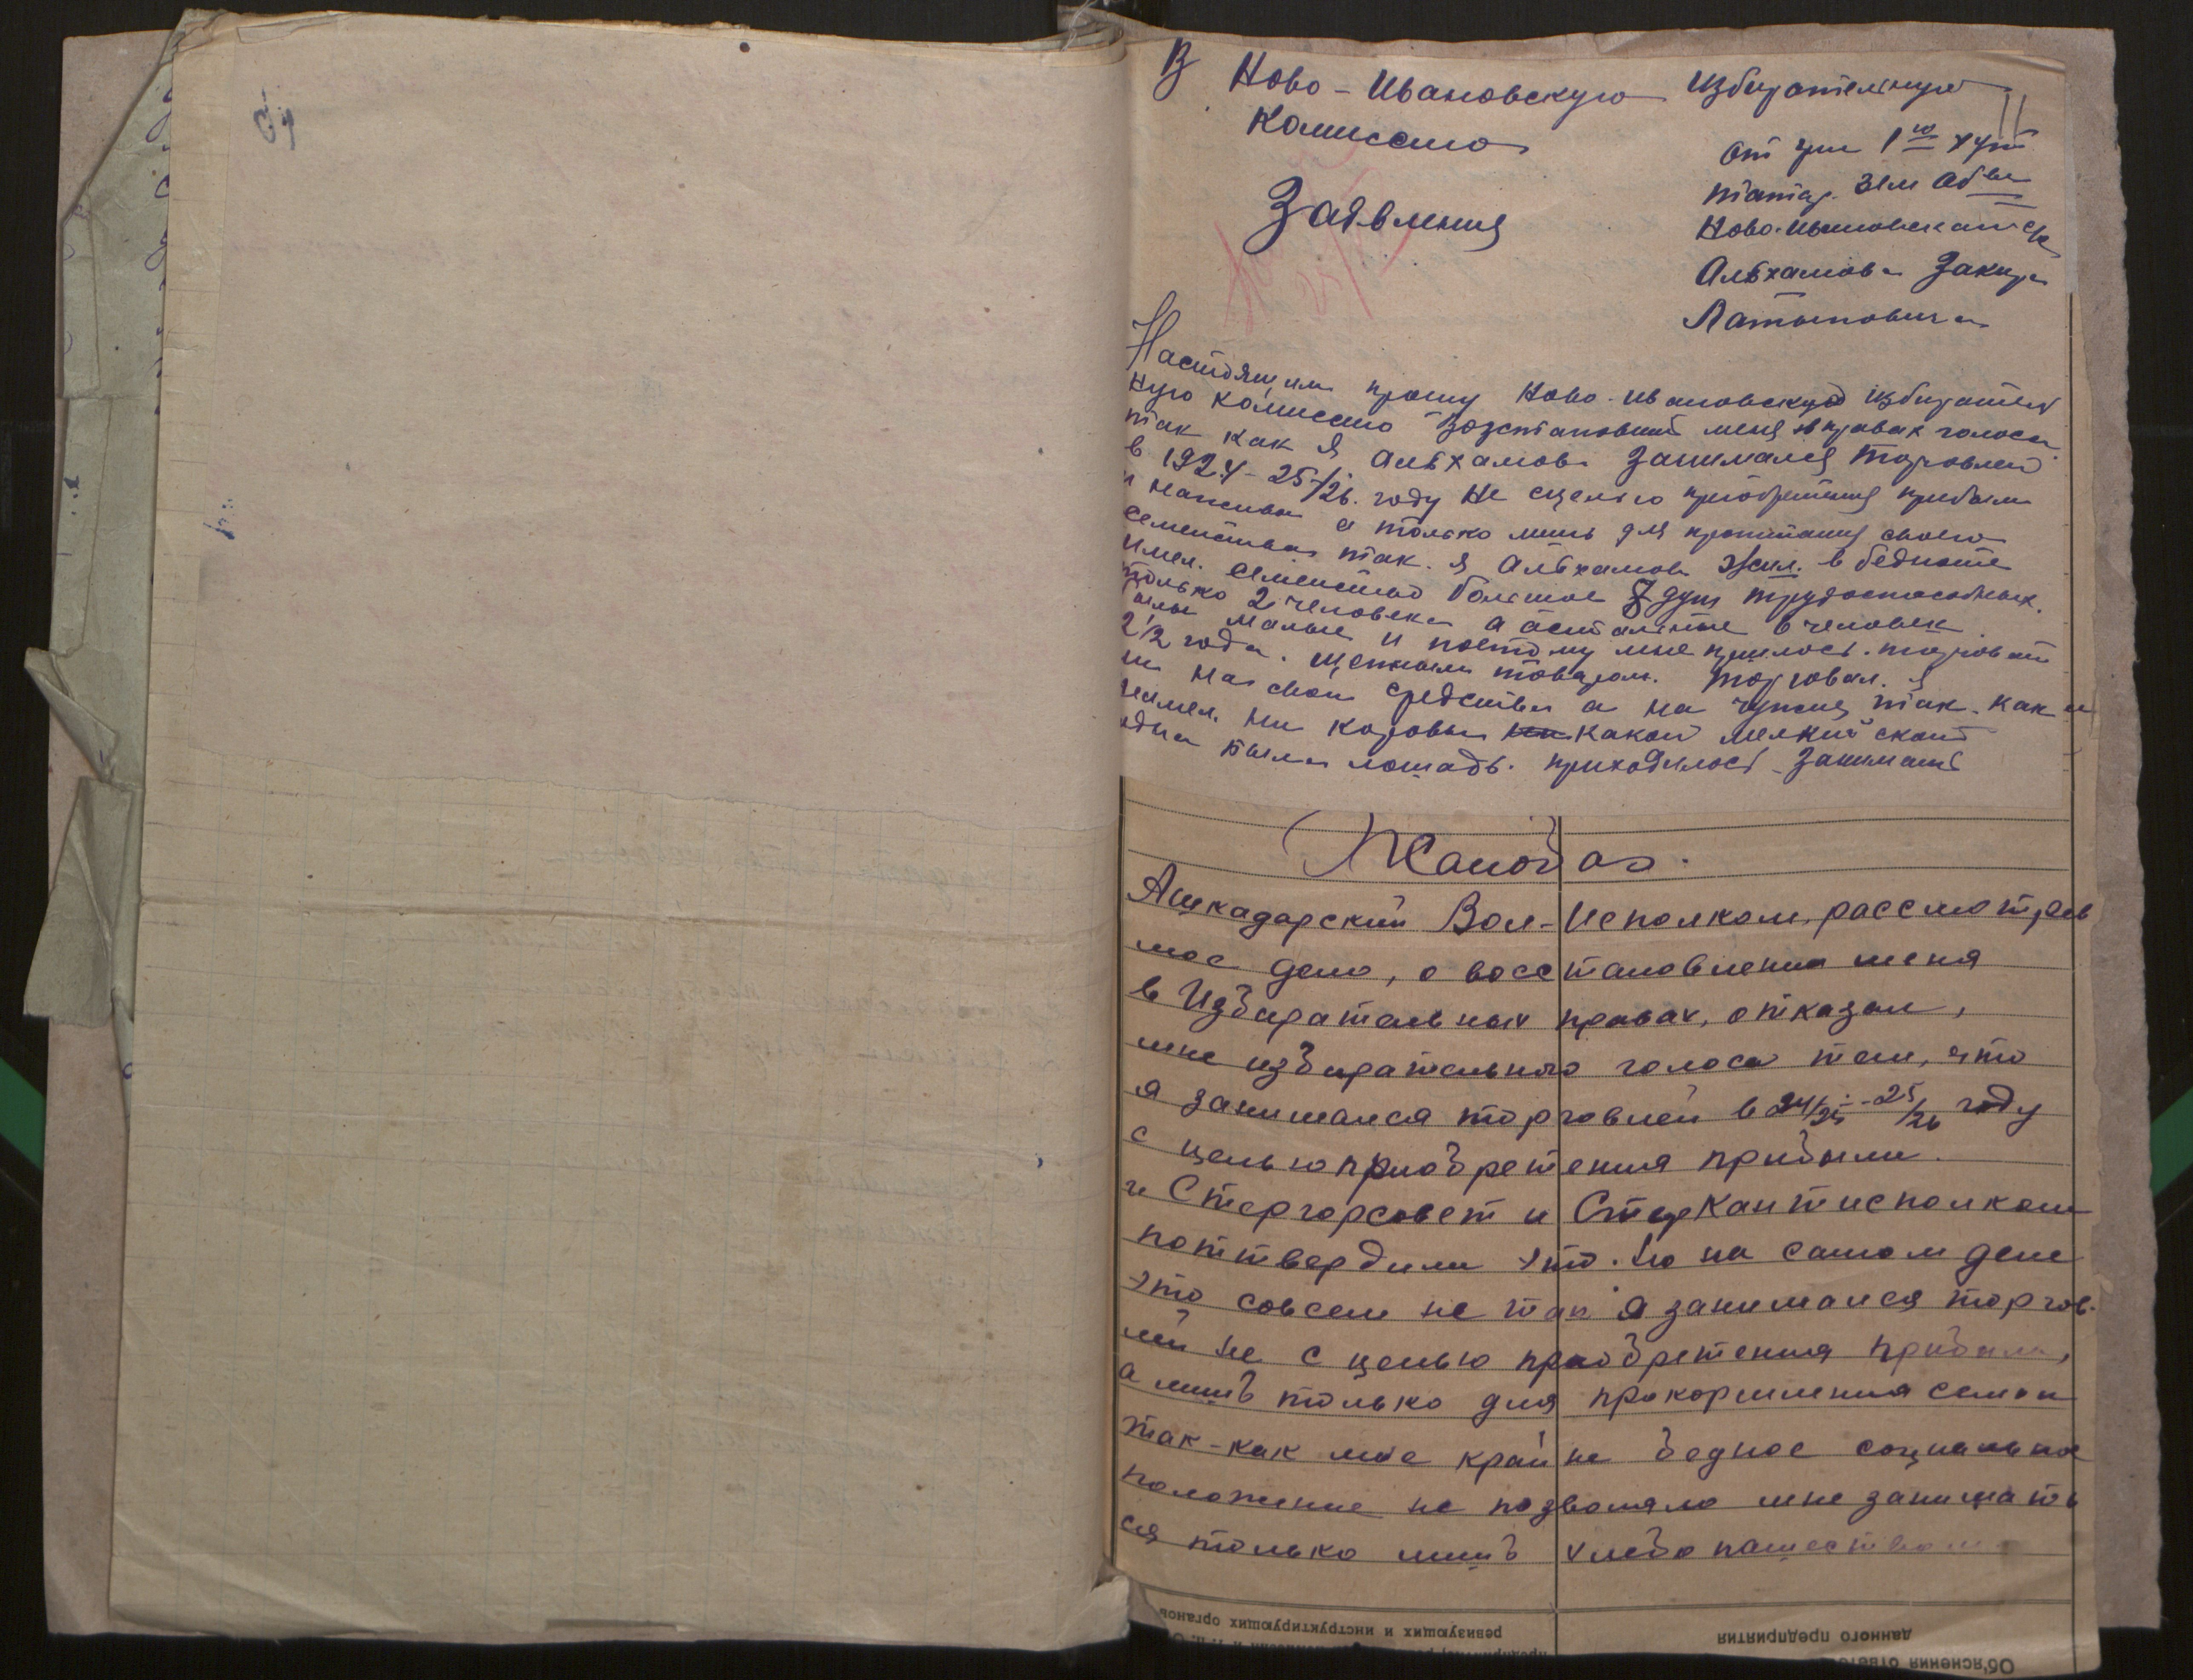 В Ново-Ивановскую Избирательную
Комиссию
от гри 1го хут
татар. Зем Обва
Ново-Ивановскат с/с
Альхамова Закира
Латыповича
Заявления
Настоящим прошу Ново-ивановскую избиратель
ную комиссию Возстановит меня в правах голоса
так как я Альхамов занимался торовлей
в 1924-25-/26. году Не сцелью приобретения прибыли
и наживы а только лишь для пропитания своего
семейства так. я Альхамов Жил. в бедноте
имел. семейство большое 8 душ трудоспособных.
только 2 человека а астальные 6 человек
были малые и поетому мне пришлось. торговат
2 1/2 года. Щепным товаром. торговал. я
ни на свои средства а на чужия так. как я
неимел. ни коровы какой мелкий скот
одна была лошадь. приходилось занимать
Жалоба.
Ашкадарский Вол-Исполком, рассмотрев
мое дело, о восстановлении меня
в Избирательных правах, отказал,
мне избирательного голоса тем, что
я занимался торговлей в 24/25-25/26 году
с целью приобретения прибыли.
и Стергорсовет и СтерКантисполком
поттвердили это. Но на самом деле
это совсем не так я занимался торгов-
лей не с целью приобретения прибыли,
а лишь только для прокормления семьи
так-как мое крайне бедное социальное
положение не позволяло мне занимать
ся только лишь хлебопашеством
ревизующих и инструктирующих органов
данного предприятия
Об'яснения